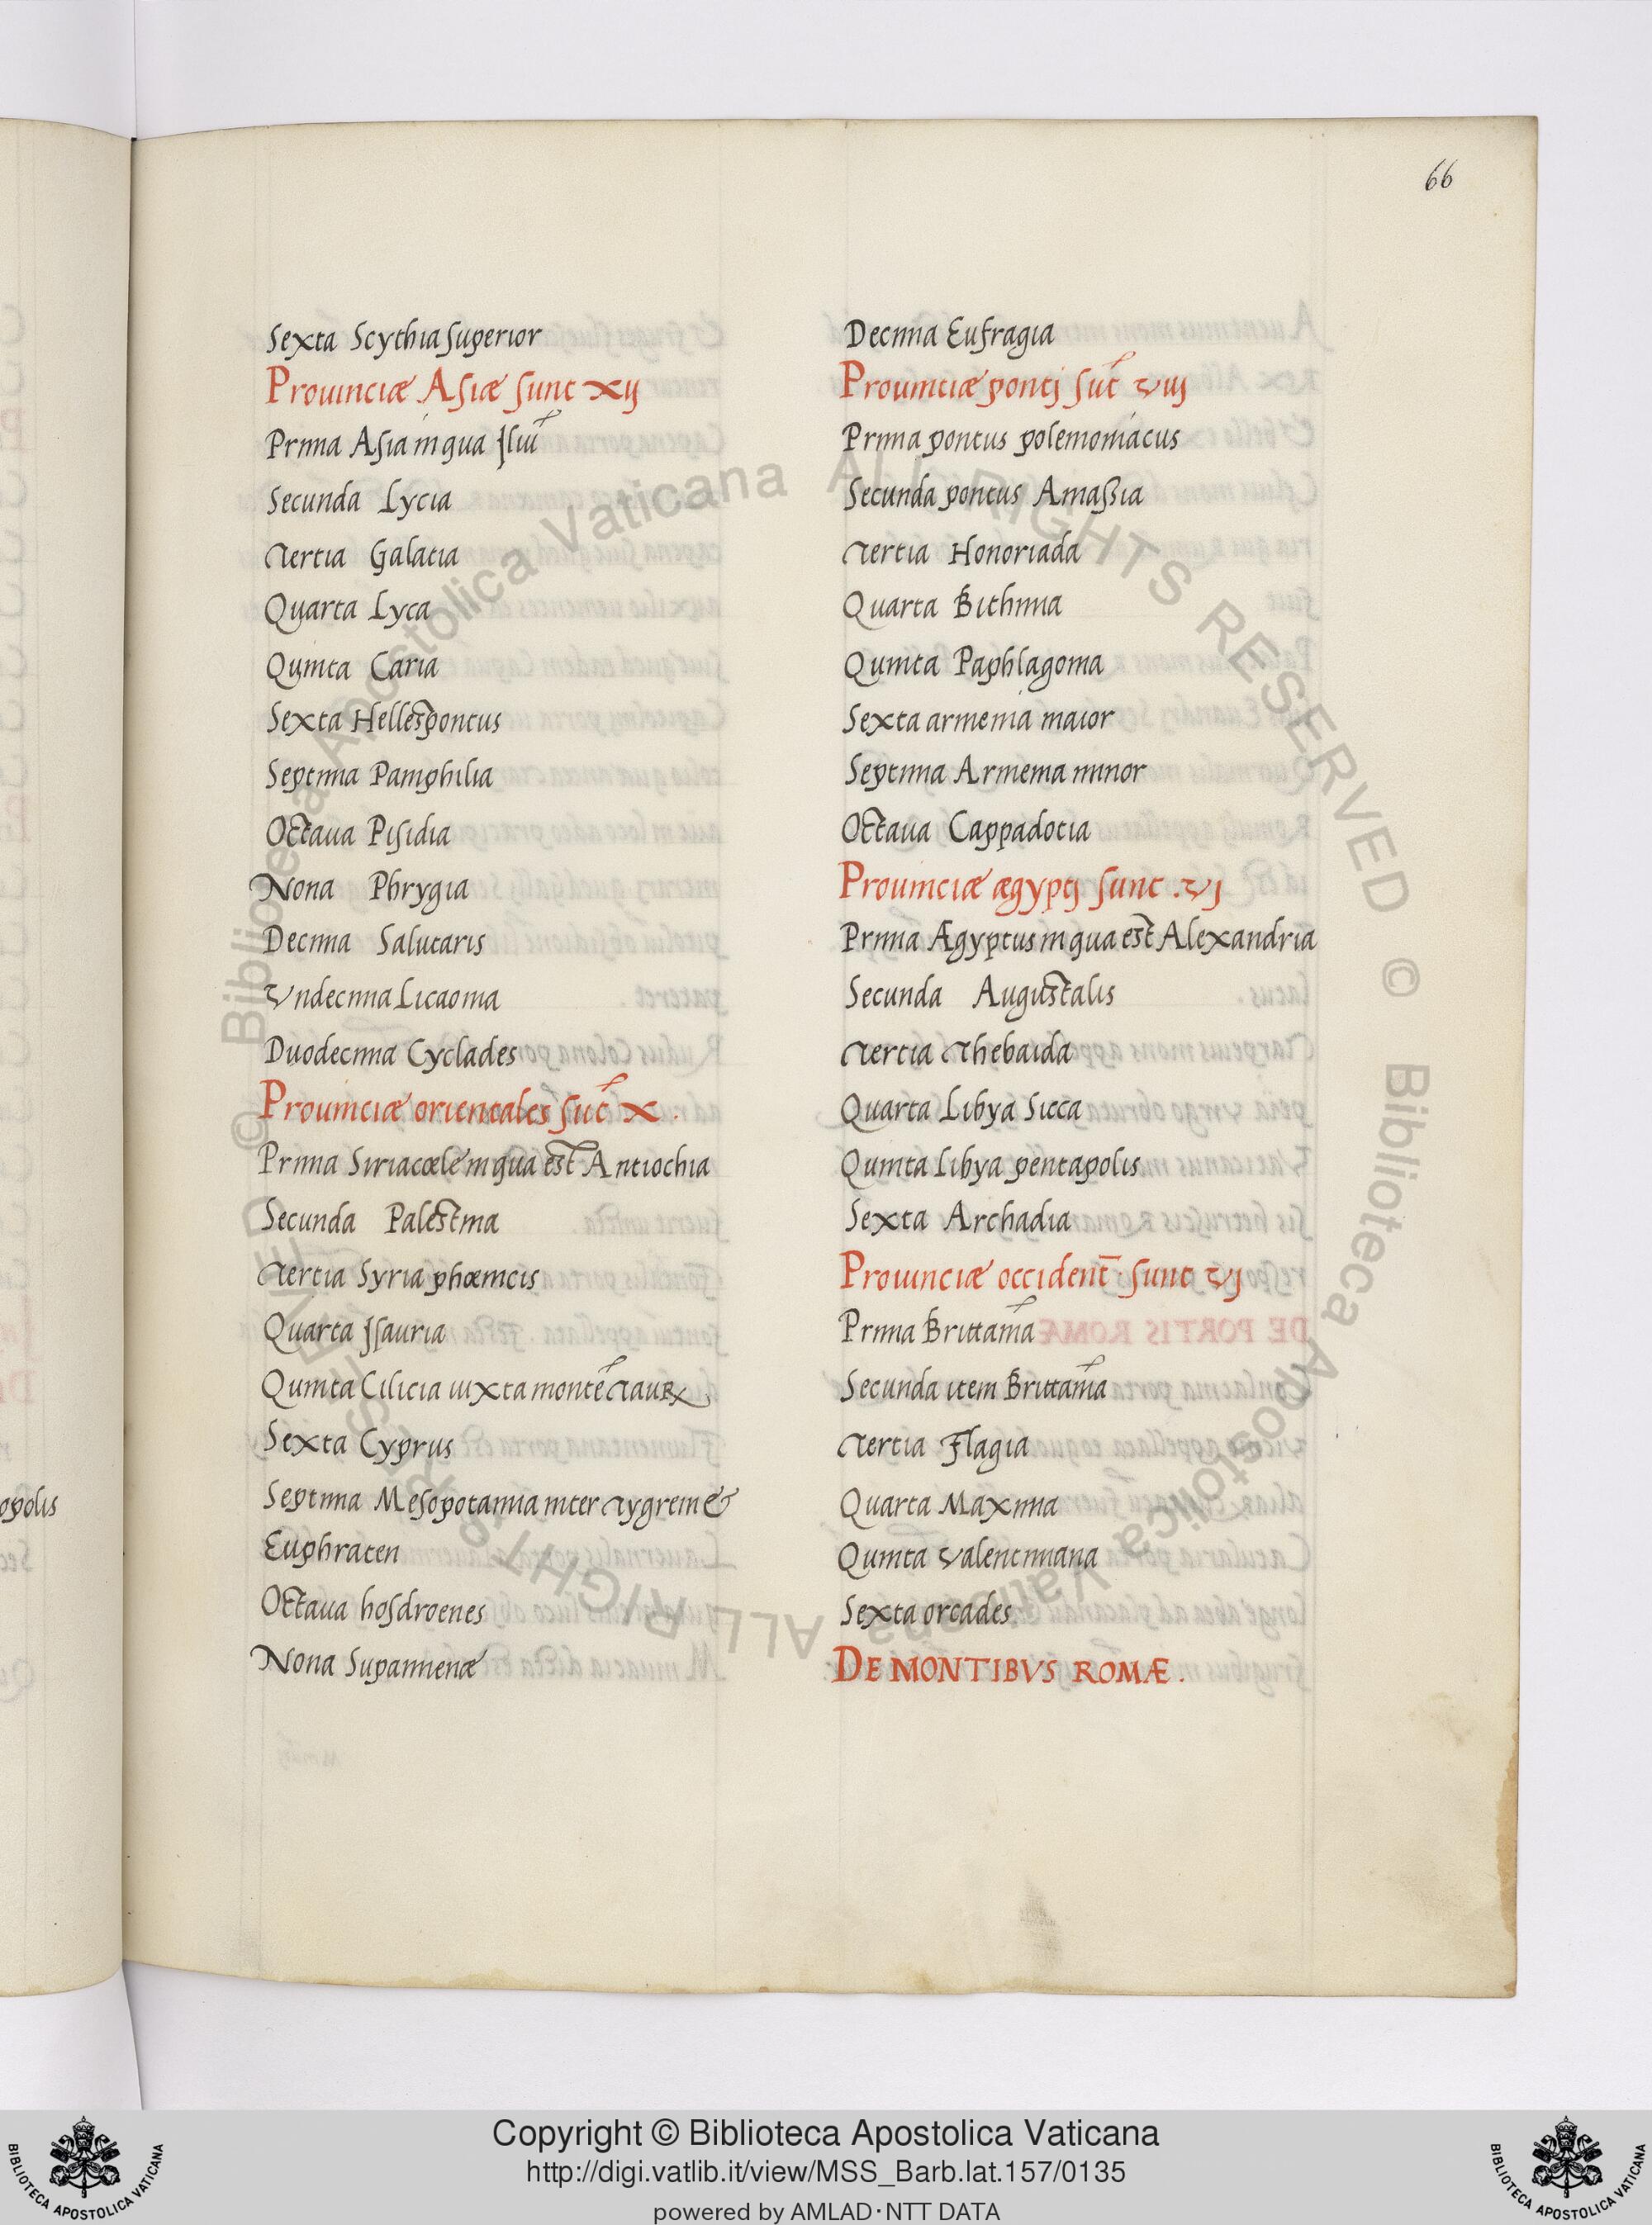 66
Sexta Scythia superior
Prouinciæ Asiæ sunt xij
Prima Asia in qua Iliū
Secunda Lycia
Tertia Galatia
Quarta Lyca
Quinta Caria
Sexta Hellespontus
Septima Pamphilia
Octaua Pisidia
Nona Phrygia
Decima Salutaris
Vndecima Licaonia
Duodecima Cyclades
Prouinciæ orientales sūt x.
Prima Siriacœle in qua est Antiochia
Secunda Palestina
Tertia Syria phœnicis
Quarta Isauria
Quinta Cilicia iuxta montē Tauꝝ
Sexta Cyprus
Septima Mesopotamia inter Tygrem &
Euphraten
Octaua hosdroenes
Nona Supannenæ
Decima Eufragia
Prouinciæ pontj sūt viij
Prima pontus polemoniacus
Secunda pontus Amaßia
Tertia Honoriada
Quarta Bithinia
Quinta Paphlagonia
Sexta armenia maior
Septima Armenia minor
Octaua Cappadotia
Prouinciæ ægyptj sunt .vj
Prima Ægyptus in qua est Alexandria
Secunda Augustalis
Tertia Thebaida
Quarta Libya Sicca
Quinta Libya pentapolis
Sexta Archadia
Prouinciæ occident̄. sunt vj
Prima Brittania
Secunda item Brittania
Tertia Flagia
Quarta Maxima
Quinta Valentiniana
Sexta orcades
DE MONTIBVS ROMÆ.
opolis
© Biblioteca Apostolica Vaticana ALL RIGHTS RESERVED © Biblioteca Apostolica Vaticana ALL RIGHTS RESERVED
BIBLIOTECA APOSTOLICA VATICANA
Copyright © Biblioteca Apostolica Vaticana
http://digi.vatlib.it/view/MSS_Barb.lat.157/0135
powered by AMLAD·NTT DATA
BIBLIOTECA APOSTOLICA VATICANA